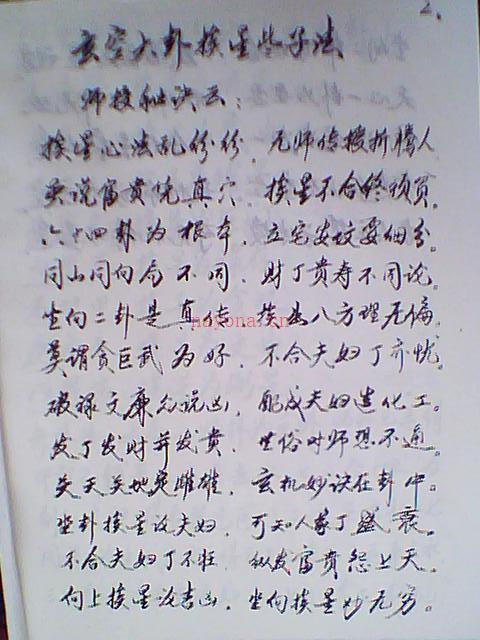 2.
玄空大卦挨星些子法
师授秘诀云：
挨星心法乱纷纷，无师传授折腾人
莫说富贵凭真穴，挨星不合终须贫。
六十四卦为根本，立宅安坟要细分。
同山同向局不同，财丁贵寿不同论。
坐向二卦是真去，挨出八方理无偏。
莫谓贪巨武为好，不合夫妇丁亦忧。
破禄文廉众说凶，配成夫妇造化工。
发丁发财并发贵，坐俗对师想不通。
关天关地兔雌雄，玄机妙诀在卦中。
坐卦挨星设夫妇，可知人家丁盛衰。
不合夫妇丁不旺，纵发富贵怨上天。
向上挨星设吉凶，坐向挨星妙无穷。
nayona.cn